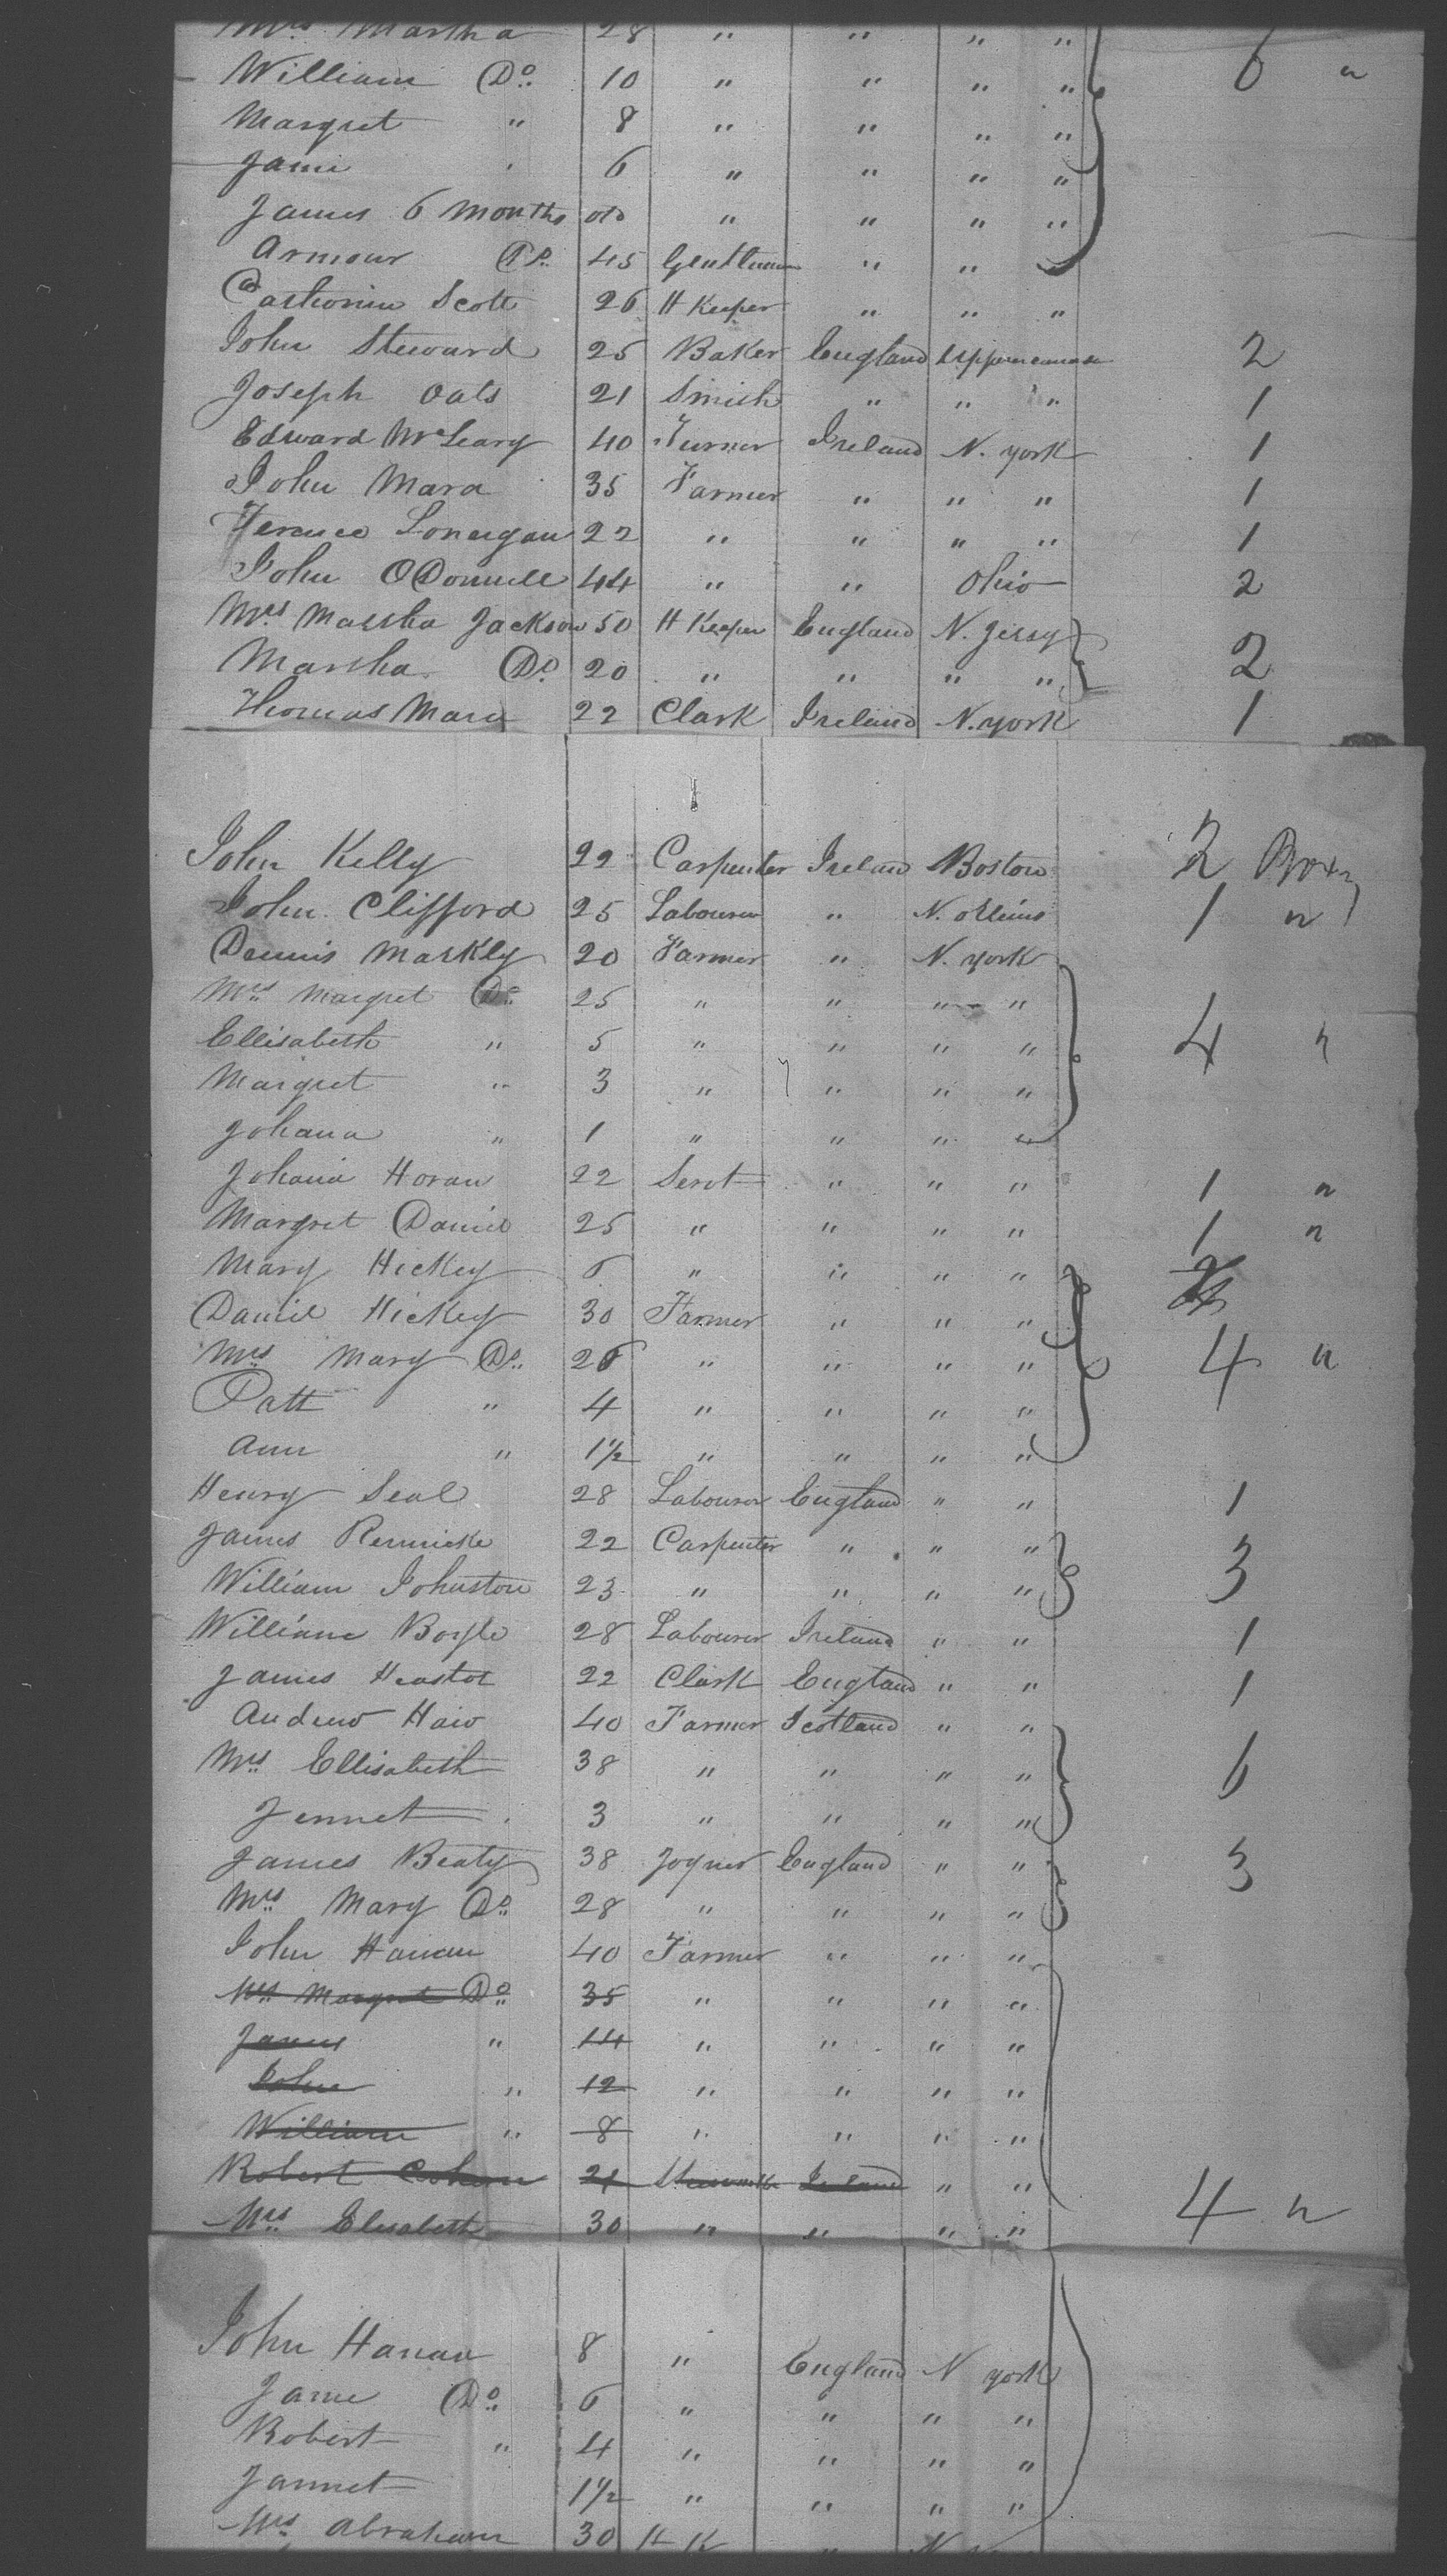 Mrs Martha 28 " " " " 6 "
William Do. 10 " " " "
Margret " 8 " " " "
Jane 6 " " " "
James 6 Months old " " " "
Armour Do. 45 Gentleman " " "
Scott 26 H Keeper " " "
John Steward 25 Baker England 2
Joseph Oats 21 Smith " " " 1
Edward McLeary 40 Turner Ireland N. york 1
John Mara 35 Farmer " " " 1
Terence Lonergan 22 " " " " 1
John ODonnell 44 " " Ohio 2
Mrs Marsha Jackson 50 H Keeper England N. Jersy 2
Marsha Do. 20 " " " "
Thomas Mara 22 Clark Ireland N. york 1
John Kelly 22 Carpenter Ireland Boston 2 Boxes
John Clifford 25 Labourer " N. Orleins 1 "
Dennis Markly 20 Farmer " N. york
Mrs Margret Do. 25 " " " "
Ellisabeth " 5 " " " " 4 "
Margret " 3 " " " "
Johana " 1 " " " "
Johana Horan 22 Servt " " " 1 "
Margret Daniel 25 " " " " 1 "
Mary Hickey 6 " " " "
Daniel Hickey 30 Farmer " " "
Mrs Mary Do. 26 " " " " 4 "
Patt " 4 " " " "
Ann " 1½ " " " "
Henry Seal 28 Labourer England " " 1
James Rennicke 22 Carpenter " " " 3
William Johnston 23 " " " "
William Boyle 28 Labourer Ireland " " 1
James Heaston 22 Clark England " " 1
Andrew Haw 40 Farmer Scotland " "
Mrs Ellisabeth 38 " " " " 6
Jennet 3 " " " "
James Beaty 38 Joyner England " " 3
Mrs Mary Do. 28 " " " "
John Hanan 40 Farmer " " "
Mrs Margret Do. 35 " " " "
James " 14 " " " "
John " 12 " " " "
William " 8 " " " "
Robert 21 Ireland " "
Mrs Elisabeth 30 " " " " 4 "
John Hanan 8 " England N york
Jane Do. 6 " " " "
Robert " 4 " " " "
Jannet 1½ " " " "
Mrs Abraham 30 H K " N